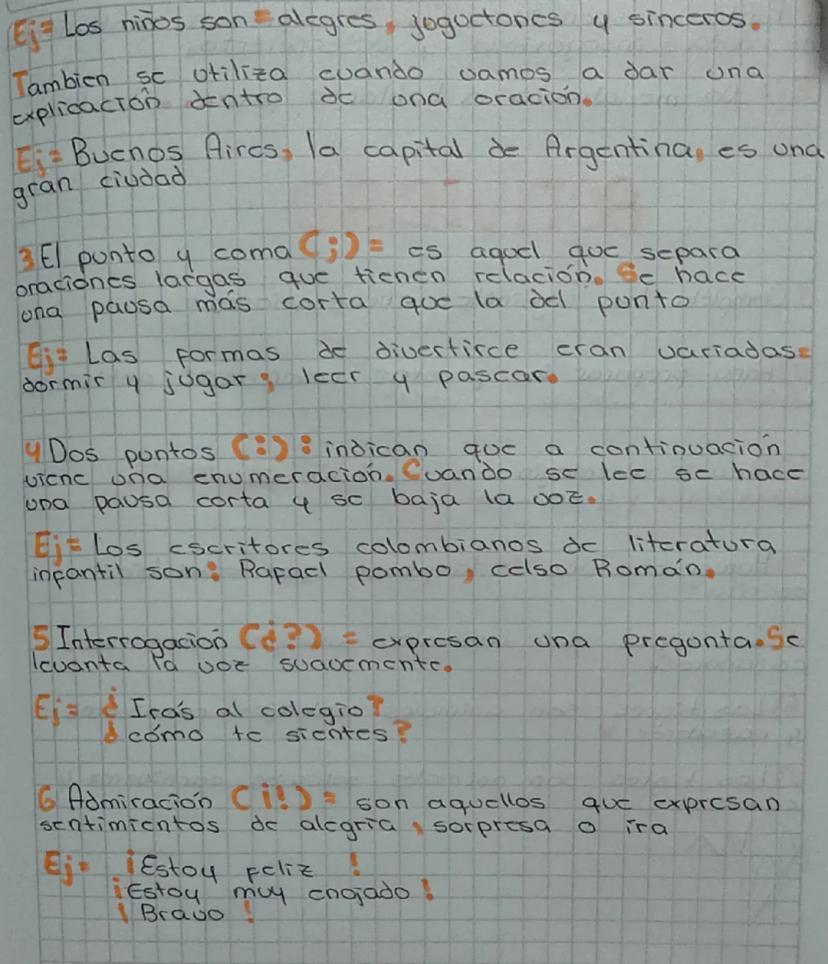 Ej= Los niños son= alegres, joguetones y sinceros.
Tambien se utiliza cuando vamos a dar una
explicación dentro de una oración.
Ej= Buenos Aires, la capital de Argentina, es una
gran ciudad
3 El punto y coma (;)= es aquel que separa
oraciones largas que tienen relación. Se hace
una pausa más corta que la del punto
Ej= Las formas de divertirce eran variadas:
dormir y jugar; leer y pasear.
4 Dos puntos (:): indican que a continuación
viene una enumeración. Cuando se lee se hace
una pausa corta y se baja la voz.
Ej= Los escritores colombianos de literatura
infantil son: Rafael pombo, celso Román.
5 Interrogación (¿?) = expresan una pregunta. Se
levanta la voz suavemente.
Ej= ¿Irás al colegio?
¿cómo te sientes?
6 Admiración (¡!)= son aquellos que expresan
sentimientos de alegria, sorpresa o ira
Ej= ¡Estoy feliz !
¡Estoy muy enojado!
¡Bravo !